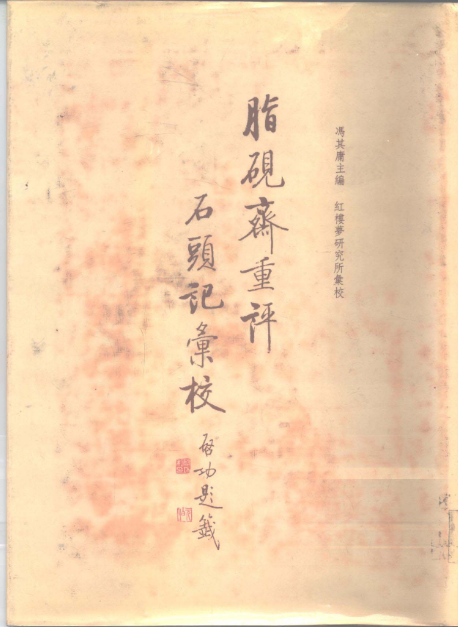 馮其庸主編 紅樓夢研究所彙校
脂硯齋重評
石頭記彙校
啓功題籤